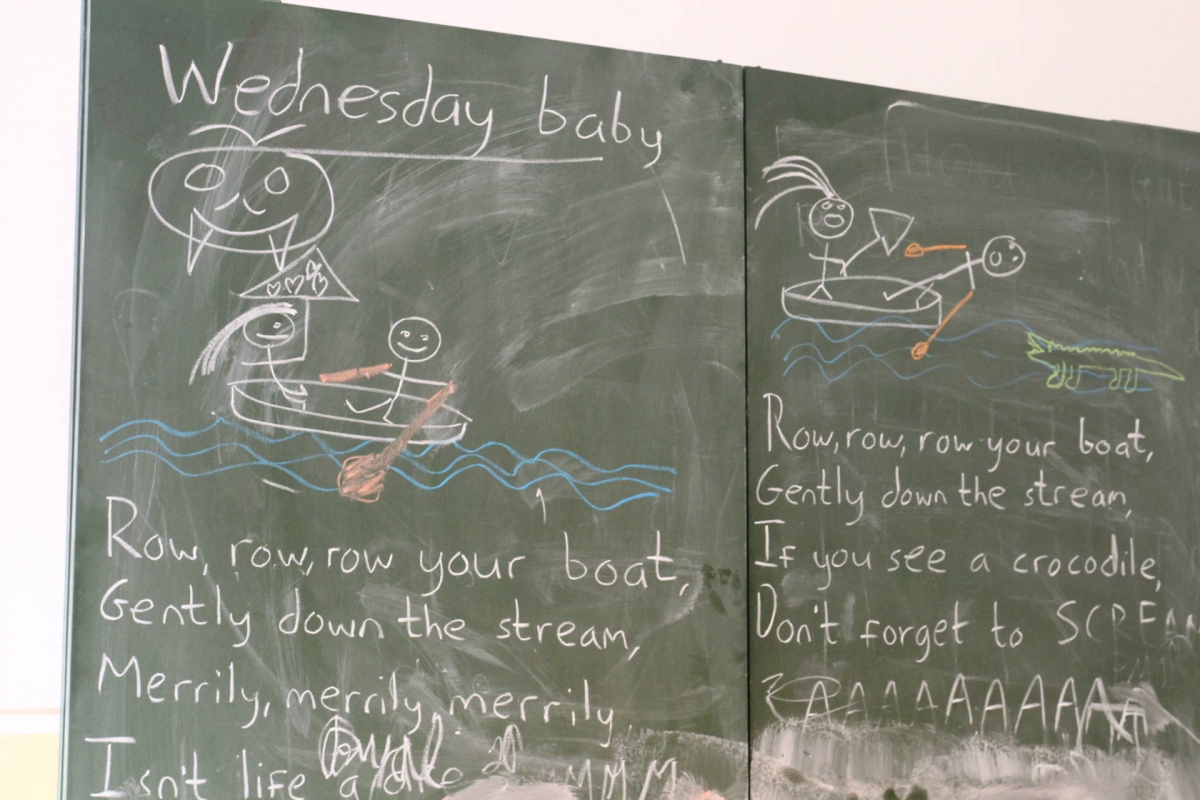 Wednesday baby
Row, row, row your boat,
Gently down the stream,
Merrily, merrily, merrily,
Isn't life a
Row, row, row your boat,
Gently down the stream,
If you see a crocodile,
Don't forget to SCREA
AAAAAAAAA